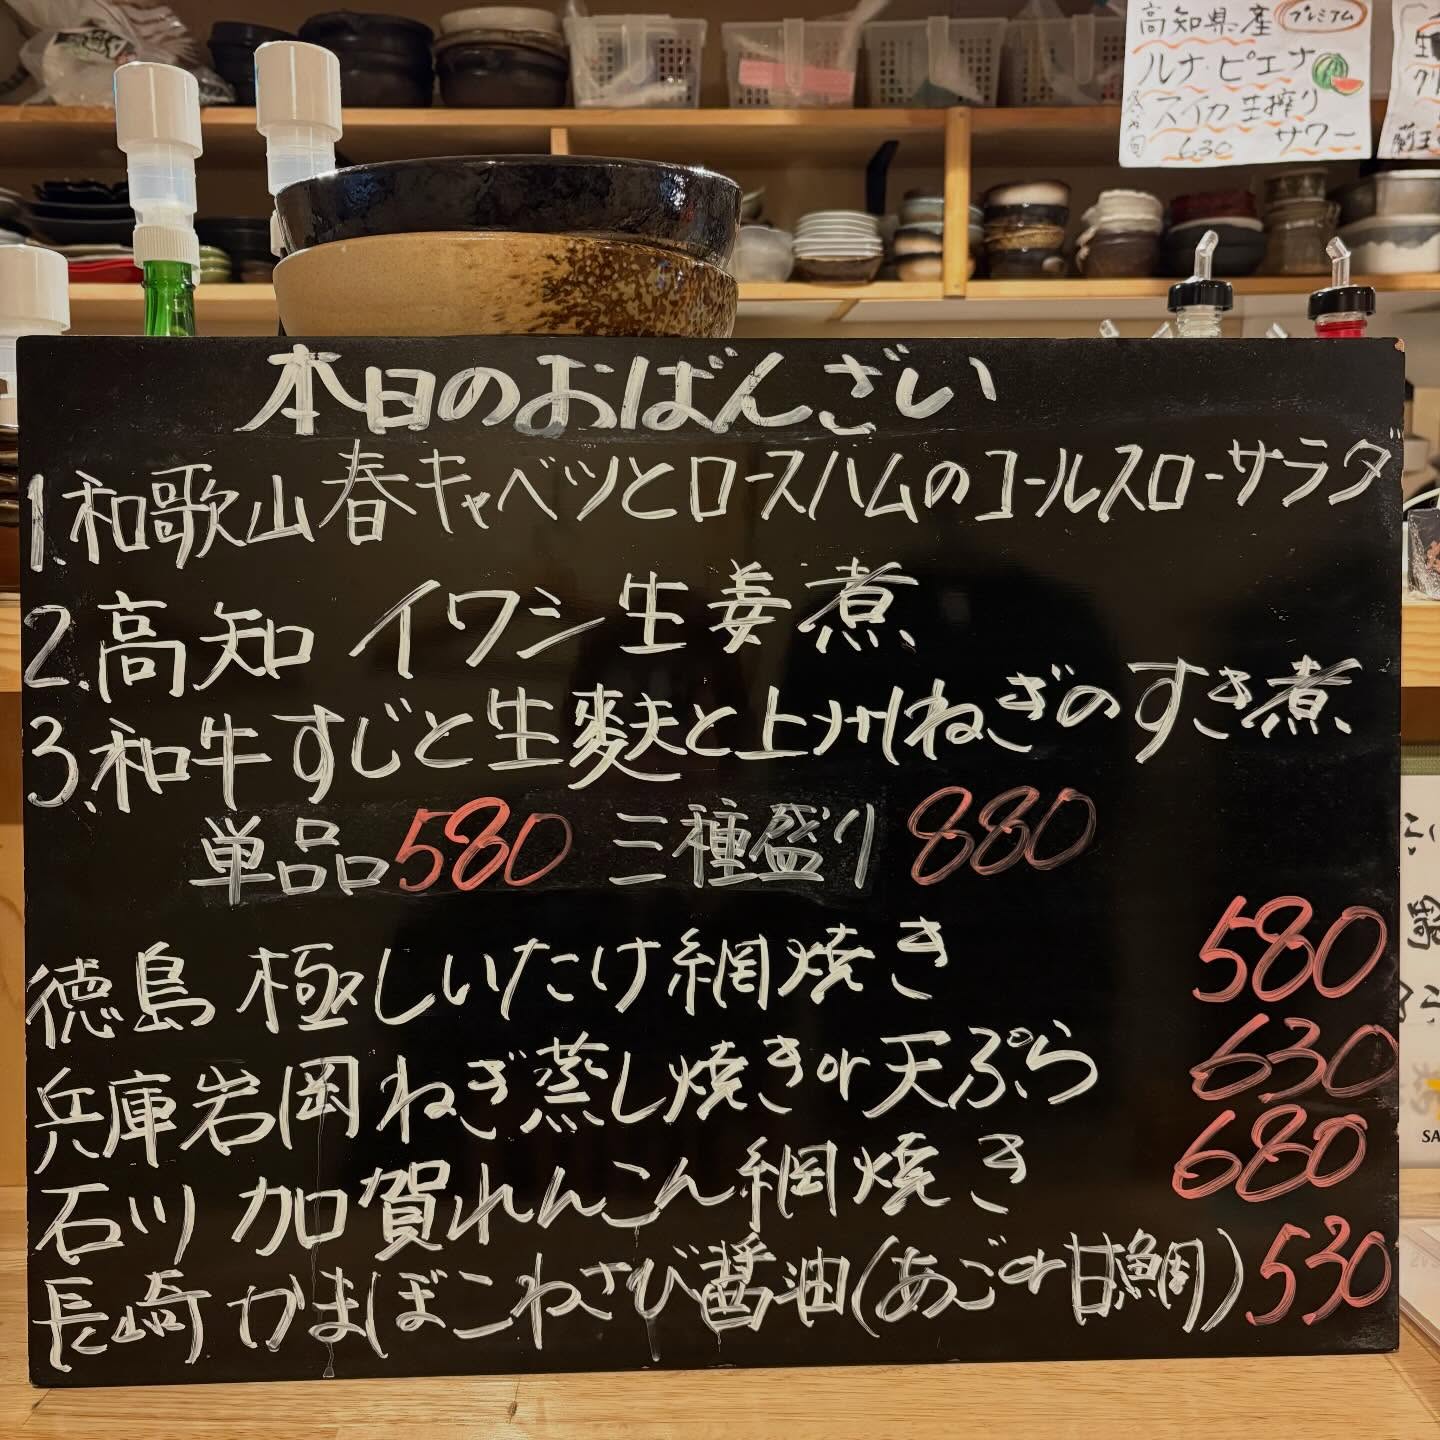 高知県産 プレミアム
ルナ・ピエナ
スイカ 生搾り
サワー
630
本日のおばんざい
1.和歌山 春キャベツとロースハムのコールスローサラダ
2.高知 イワシ生姜煮
3.和牛すじと生麩と上州ねぎのすき煮
単品580 三種盛り 880
徳島 極しいたけ網焼き 580
兵庫岩岡ねぎ蒸し焼きor天ぷら 630
石川 加賀れんこん網焼き 680
長崎 かまぼこわさび醤油(あごor甘鯛) 530
SA